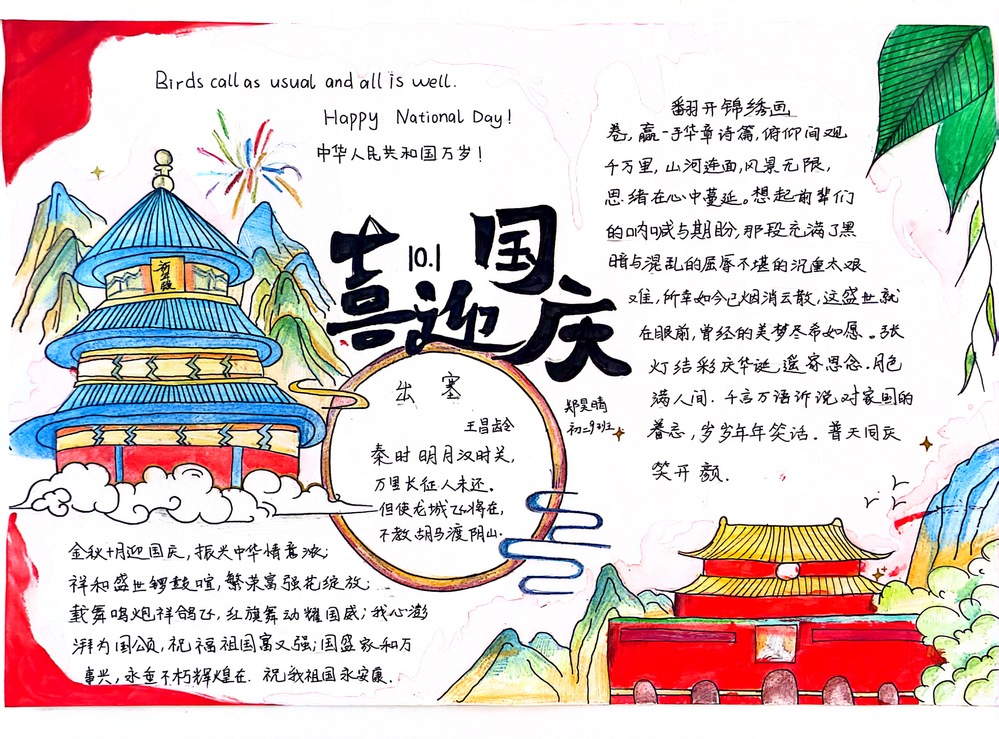 Birds call as usual and all is well.
Happy National Day!
中华人民共和国万岁！
喜迎国庆
10.1
出塞
王昌龄
秦时明月汉时关，
万里长征人未还。
但使龙城飞将在，
不教胡马渡阴山.
郑昊晴
初二9班
翻开锦绣画
卷，赢一手华章诗篇，俯仰间观
千万里，山河连面，风景无限，
思绪在心中蔓延。想起前辈们
的呐喊与期盼，那段充满了黑
暗与混乱的屈辱不堪的沉重太艰
难，所幸如今已烟消云散，这盛世就
在眼前，曾经的美梦尽帝如愿。张
灯结彩庆华诞，遥寄思念.月色
满人间.千言万语诉说对家国的
眷恋，岁岁年年笑话.普天同庆
笑开颜.
金秋十月迎国庆，振兴中华情意浓；
祥和盛世锣鼓喧，繁荣富强花绽放；
载舞鸣炮祥鸽飞，红旗舞动耀国威；我心澎
湃为国颂，祝福祖国富又强；国盛家和万
事兴，永垂不朽辉煌在.祝我祖国永安康.